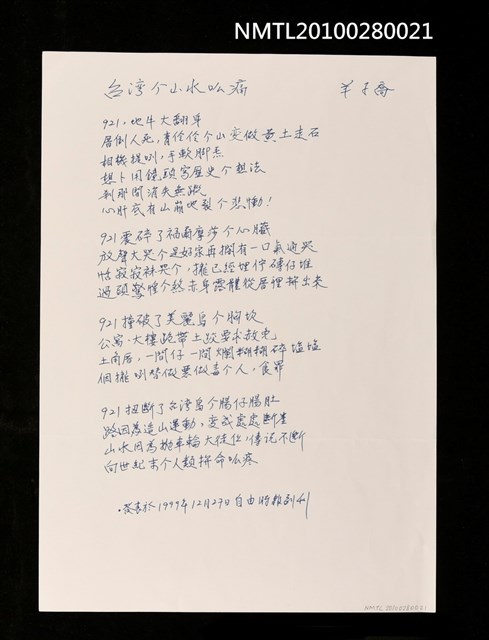 NMTL20100280021
台湾个山水ㄙ痛
羊子喬
921,地牛大翻身
厝倒人死,青仔仔个山变做黄土走石
相機提咧,手軟脚
想卜用鏡頭寫歷史个想法
刹那間消失無蹤
心肝底有山崩地裂个悲慟!
921震碎了福爾摩莎个心臟
放聲大哭个是好家再擱有一口氣通哭
恬寂寂袂哭个,攏已經埋佇磚仔堆
過頭驚惶个終赤身露體從厝裡拚出來
921撞破了美麗島个胸坎
公寓、大樓跪帶土跤要求赦宅
土角厝,一間仔一間爛糊糊碎塩塩
個攏咧替做惡做毒个人,食罪
921扭斷了台灣島个腸仔腸肚
路因為造山運動,變成處處斷崖
山水因為拋車輪大徙位,傳说不斷
向世紀末个人類拚命吆疼
·發表於1999年12月27日自由時報副刊
NMTL20100280021